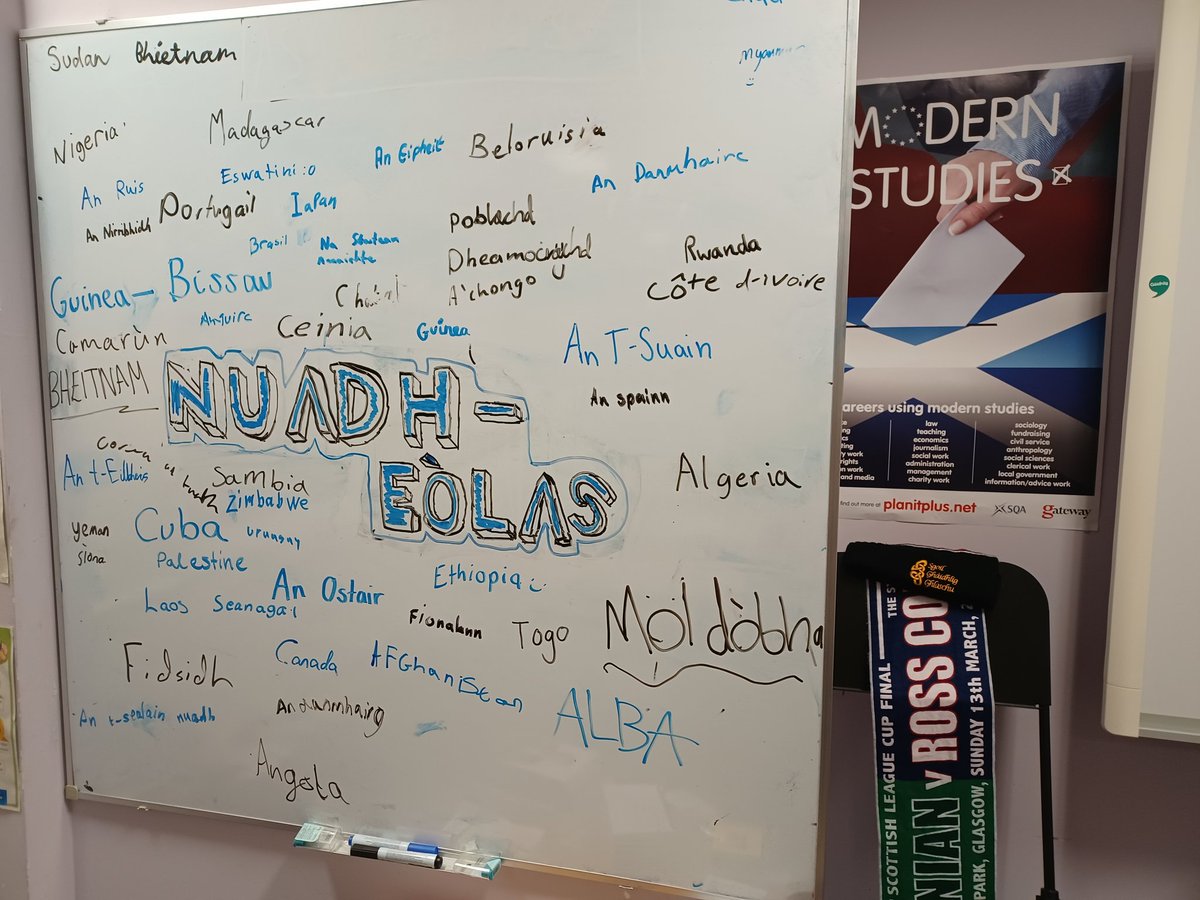 Sudan Bhietnam
Nigeria
Madagascar
An Ruis
Eswatini :o
An Eipheit
Beloruisia
An Danmhairc
An Nirribhidh
Portugail
Iapan
Poblachd
Dheamocrachd
A'chongo
Brasil
Na Stàitean
Rwanda
Côte d-ivoire
Guinea-Bissau
Camarùn
Ceinia
Guinea
An T-Suain
An spainn
BHEITNAM
NUADH-
EÒLAS
Algeria
Sambia
Zimbabwe
Yeman
Cuba
Palestine
Laos Seanagal
An Ostair
Ethiopia
Togo
Moldòbha
Fidsidh
Canada
AFGhanistan
ALBA
An t-sealain nuadh
Angola
MODERN
STUDIES
careers using modern studies
law
teaching
economics
journalism
social work
administration
management
charity work
sociology
fundraising
civil service
anthropology
social sciences
clerical work
local government
information/advice work
find out more at planitplus.net
SQA
gateway
Sgoil
Ghàidhlig
Ghlaschu
SCOTTISH LEAGUE CUP FINAL
NIAN v ROSS CO
PARK, GLASGOW, SUNDAY 13th MARCH, 2